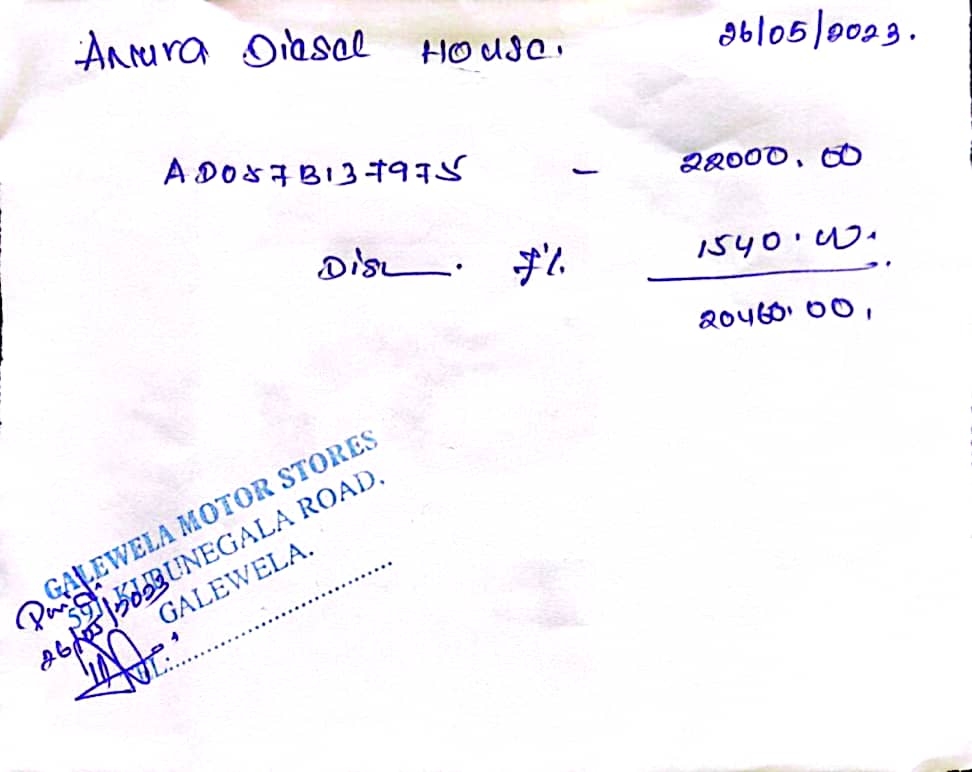 Anura Diesel House. 26/05/2023.
AD057B137975 - 22000.00
Dis 7% 1540.00.
20460.00,
GALEWELA MOTOR STORES
59, KURUNEGALA ROAD.
GALEWELA.
Paid
26/05/2023
TEL:..............................